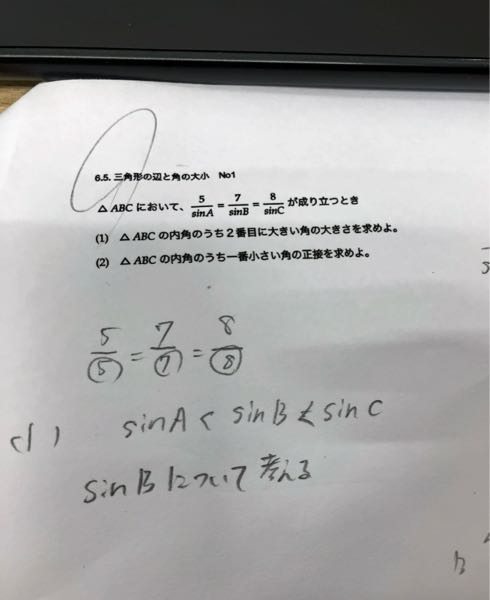 6.5. 三角形の辺と角の大小 No1
△ABC において、5/sinA = 7/sinB = 8/sinC が成り立つとき
(1) △ABC の内角のうち2番目に大きい角の大きさを求めよ。
(2) △ABC の内角のうち一番小さい角の正接を求めよ。
5/⑤ = 7/⑦ = 8/⑧
(1) sinA < sinB < sinC
sinBについて考える